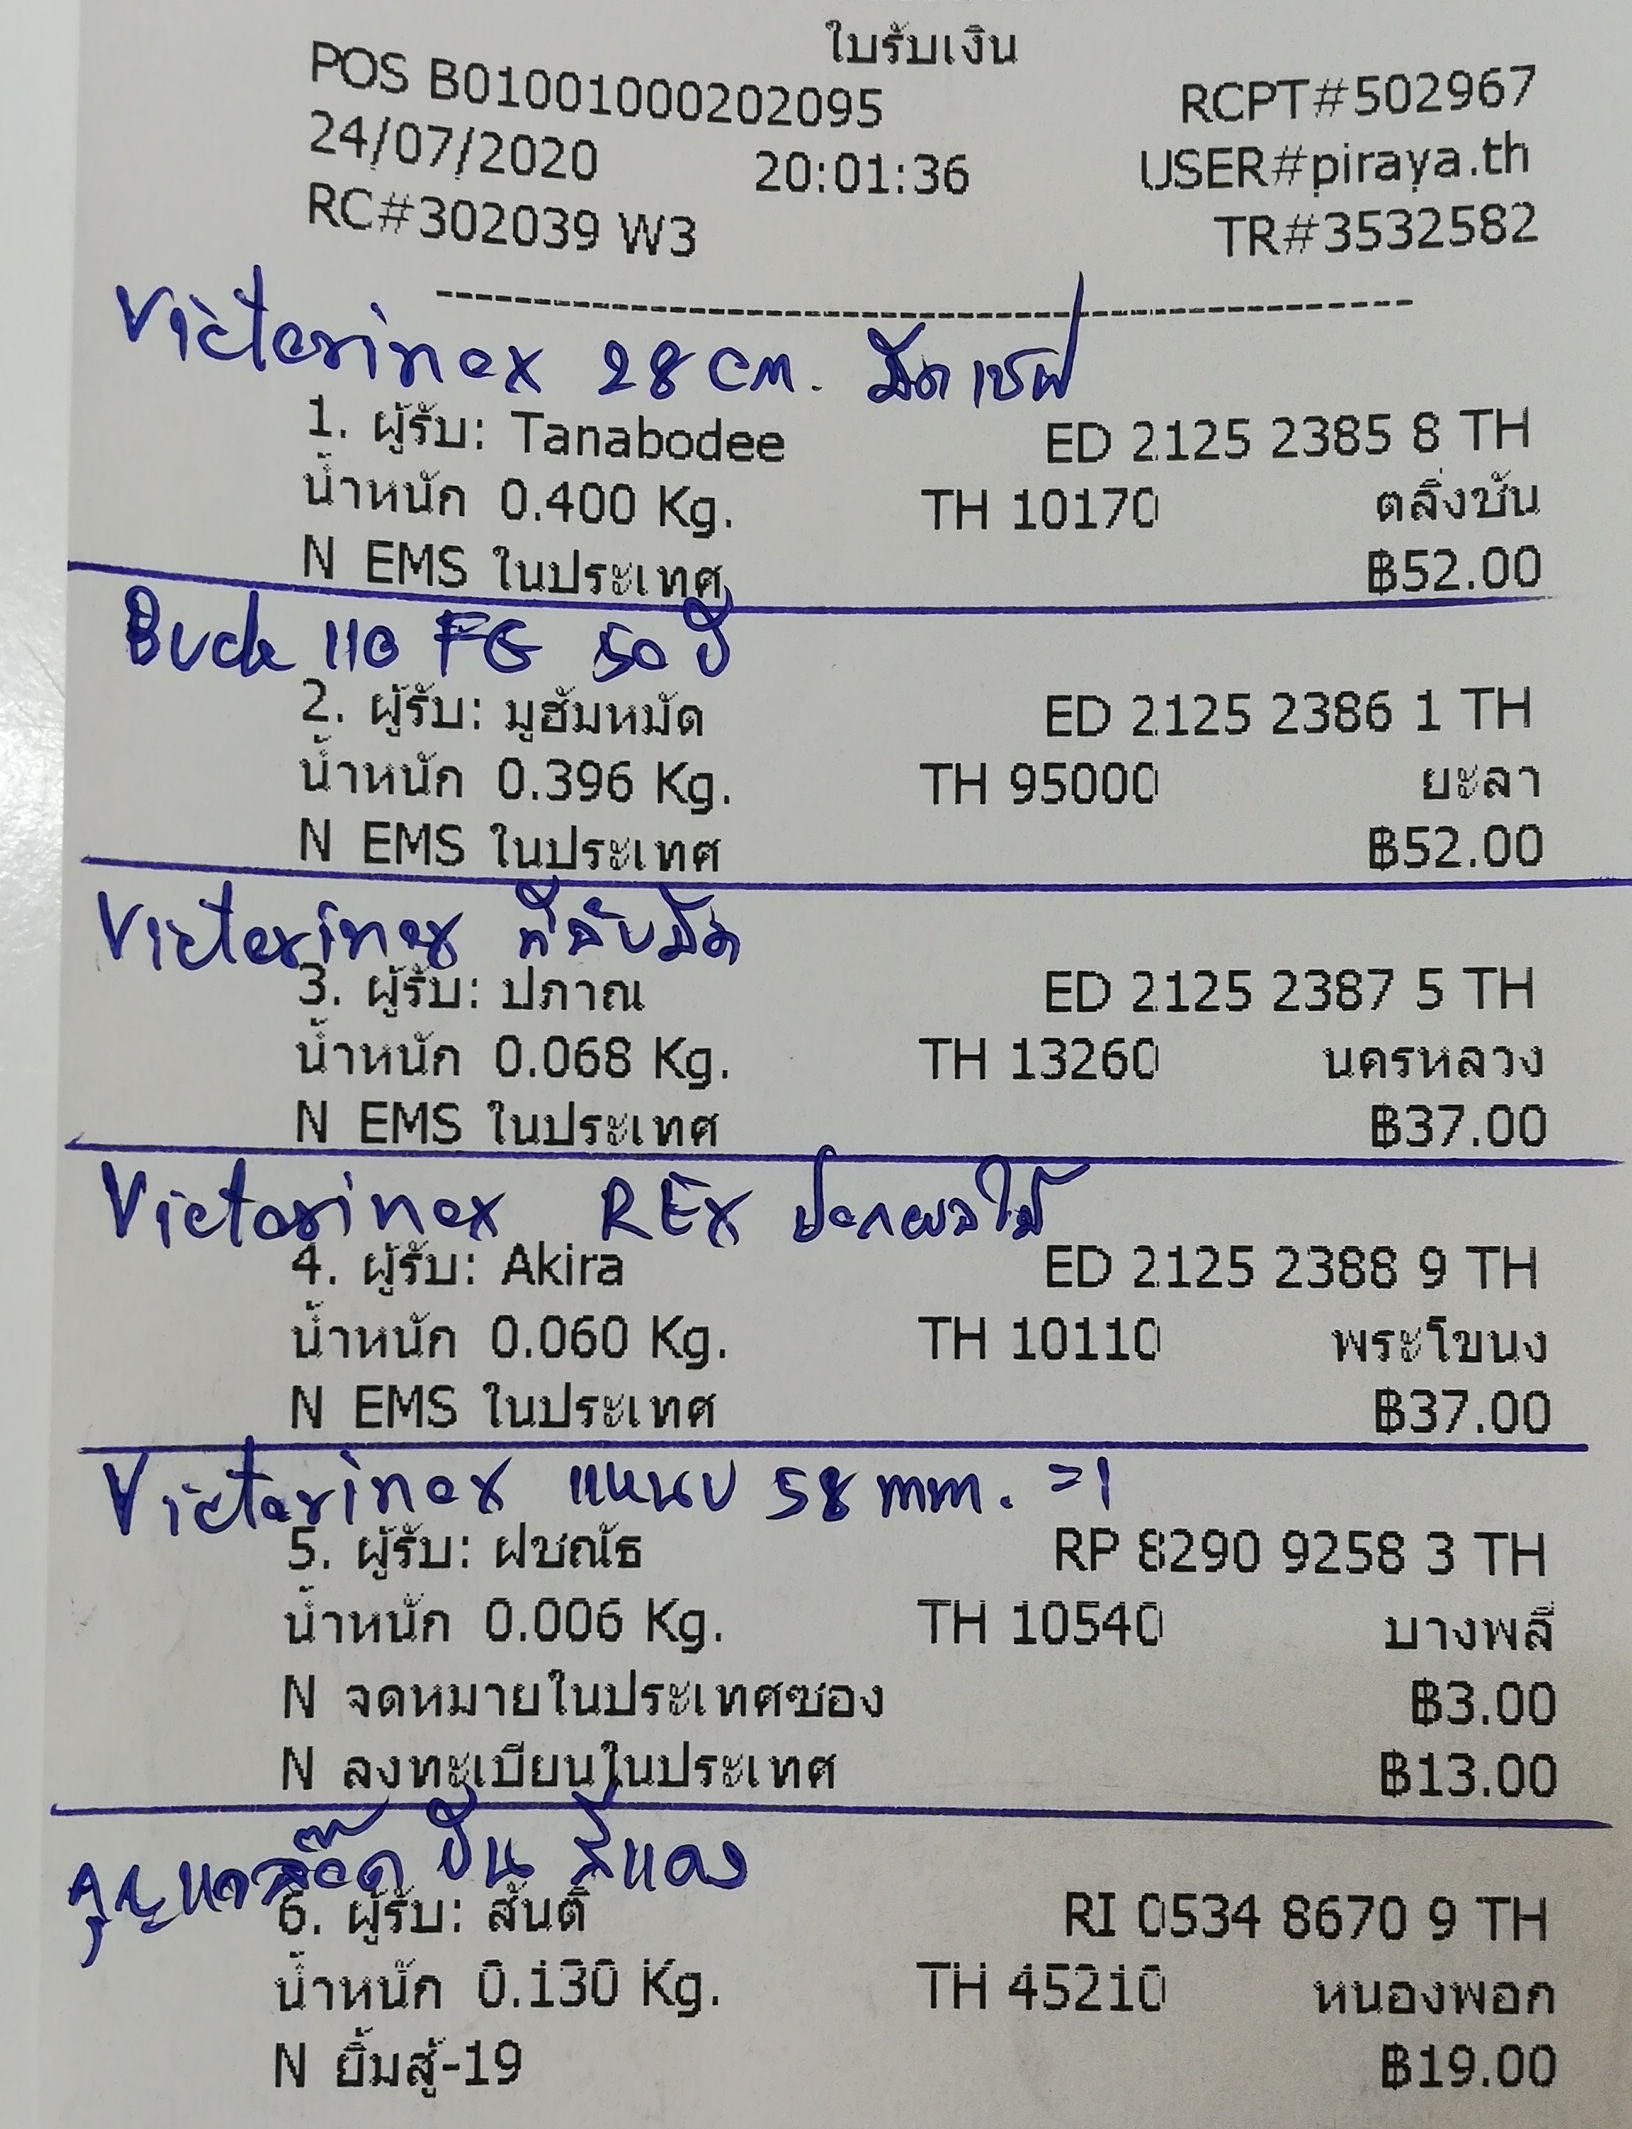 ใบรับเงิน
POS B01001000202095 RCPT#502967
24/07/2020 20:01:36 USER#piraya.th
RC#302039 W3 TR#3532582
Victorinox 28 cm. มีดเชฟ
1. ผู้รับ: Tanabodee ED 2125 2385 8 TH
น้ำหนัก 0.400 Kg. TH 10170 ตลิ่งชัน
N EMS ในประเทศ ฿52.00
Buck 110 FG 50 ปี
2. ผู้รับ: มูฮัมหมัด ED 2125 2386 1 TH
น้ำหนัก 0.396 Kg. TH 95000 ยะลา
N EMS ในประเทศ ฿52.00
Victorinox ที่ลับมีด
3. ผู้รับ: ปภาณ ED 2125 2387 5 TH
น้ำหนัก 0.068 Kg. TH 13260 นครหลวง
N EMS ในประเทศ ฿37.00
Victorinox REX ปอกผลไม้
4. ผู้รับ: Akira ED 2125 2388 9 TH
น้ำหนัก 0.060 Kg. TH 10110 พระโขนง
N EMS ในประเทศ ฿37.00
Victorinox แหนบ 58 mm. =1
5. ผู้รับ: ฝชณัธ RP 8290 9258 3 TH
น้ำหนัก 0.006 Kg. TH 10540 บางพลี
N จดหมายในประเทศซอง ฿3.00
N ลงทะเบียนในประเทศ ฿13.00
ปืน สีแดง
6. ผู้รับ: สันติ RI 0534 8670 9 TH
น้ำหนัก 0.130 Kg. TH 45210 หนองพอก
N ยิ้มสู้-19 ฿19.00